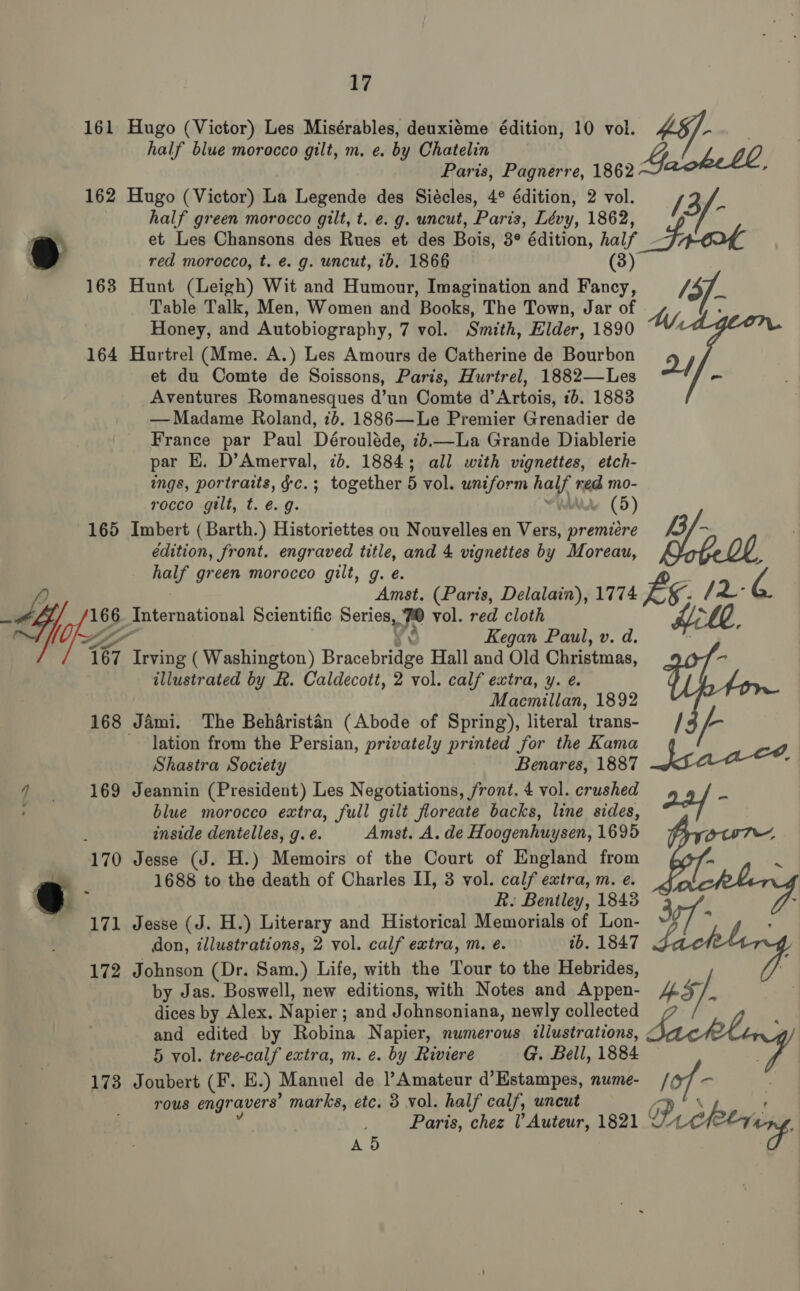 17
161 Hugo (Victor) Les Misérables, deuxiéme édition, 10 vol. 48/-
half blue morocco gilt, m. e. by Chatelin
Paris, Pagnerre, 1862
162 Hugo (Victor) La Legende des Siécles, 4e édition, 2 vol. 13/-
half green morocco gilt, t. e. g. uncut, Paris, Lévy, 1862,
et Les Chansons des Rues et des Bois, 3e édition, half
red morocco, t. e. g. uncut, ib. 1866 (3)
163 Hunt (Leigh) Wit and Humour, Imagination and Fancy, 15/-
Table Talk, Men, Women and Books, The Town, Jar of
Honey, and Autobiography, 7 vol. Smith, Elder, 1890 Widgeon.
164 Hurtrel (Mme. A.) Les Amours de Catherine de Bourbon
et du Comte de Soissons, Paris, Hurtrel, 1882—Les 21/-
Aventures Romanesques d'un Comte d'Artois, ib. 1883
—Madame Roland, ib. 1886—Le Premier Grenadier de
France par Paul Déroulède, ib.—La Grande Diablerie
par E. D'Amerval, ib. 1884; all with vignettes, etch-
ings, portraits, &c.; together 5 vol. uniform half red mo-
rocco gilt, t. e. g. (5)
165 Imbert (Barth.) Historiettes ou Nouvelles en Vers, première 13/-
édition, front. engraved title, and 4 vignettes by Moreau,
half green morocco gilt, g. e.
Amst. (Paris, Delalain), 1774
166 International Scientific Series, 70 vol. red cloth Hill.
Kegan Paul, v. d.
167 Irving (Washington) Bracebridge Hall and Old Christmas, 20/-
illustrated by R. Caldecott, 2 vol. calf extra, y. e.
Macmillan, 1892 Upton
168 Jámi. The Beháristán (Abode of Spring), literal trans- 13/-
lation from the Persian, privately printed for the Kama
Shastra Society Benares, 1887 Isaacs.
169 Jeannin (President) Les Negotiations, front. 4 vol. crushed 22/-
blue morocco extra, full gilt floreate backs, line sides,
inside dentelles, g. e. Amst. A. de Hoogenhuysen, 1695 Brown.
170 Jesse (J. H.) Memoirs of the Court of England from
1688 to the death of Charles II, 3 vol. calf extra, m. e.
R. Bentley, 1843
171 Jesse (J. H.) Literary and Historical Memorials of Lon-
don, illustrations, 2 vol. calf extra, m. e. ib. 1847 Jackling
172 Johnson (Dr. Sam.) Life, with the Tour to the Hebrides,
by Jas. Boswell, new editions, with Notes and Appen- 45/-
dices by Alex. Napier; and Johnsoniana, newly collected
and edited by Robina Napier, numerous illustrations, Jackling
5 vol. tree-calf extra, m. e. by Riviere G. Bell, 1884
173 Joubert (F. E.) Manuel de l'Amateur d'Estampes, nume- 10/-
rous engravers' marks, etc. 3 vol. half calf, uncut
Paris, chez l'Auteur, 1821 Pickering.
A 5